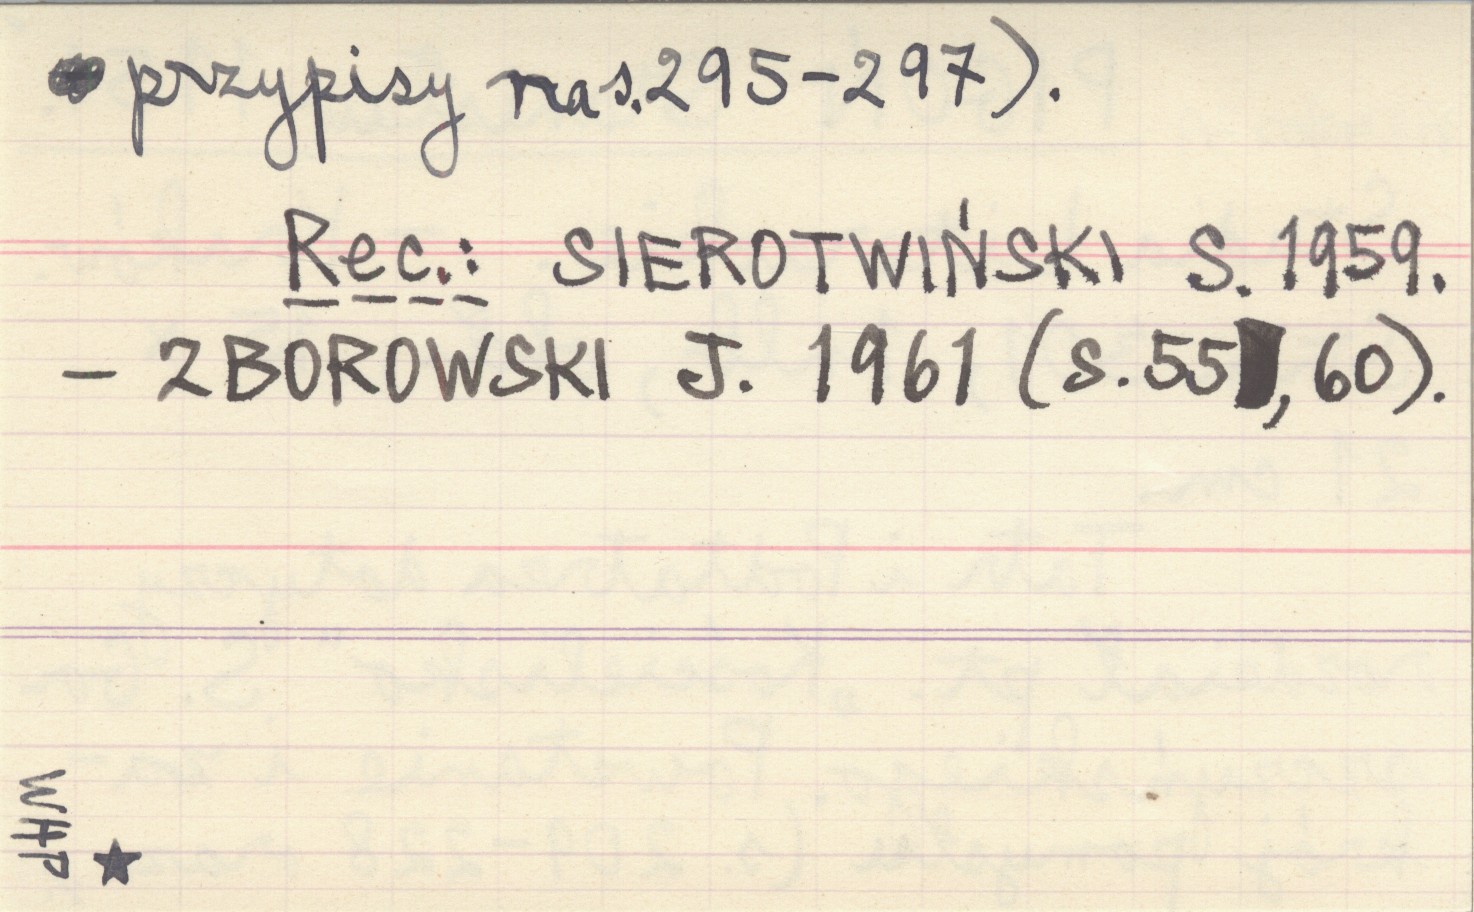 przypisy na s. 295-297).
Rec.: SIEROTWIŃSKI S. 1959.
- ZBOROWSKI J. 1961 (s. 55, 60).
WHP